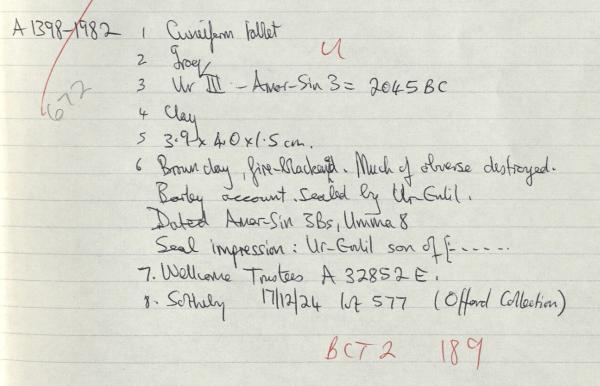 A 1398-1982 1 Cuneiform Tablet
U
2 Iraq
3 Ur III - Amar-Sin 3 = 2045 BC
672
4 Clay
5 3.9 x 4.0 x 1.5 cm.
6 Brown clay, fire-blackened. Much of obverse destroyed.
Barley account. Sealed by Ur-Enlil.
Dated Amar-Sin 3Bs, Umma 8
Seal impression: Ur-Enlil son of [- - - - - -
7. Wellcome Trustees A 32852 E.
8. Sotheby 17/12/24 lot 577 (Offord Collection)
BCT 2 189